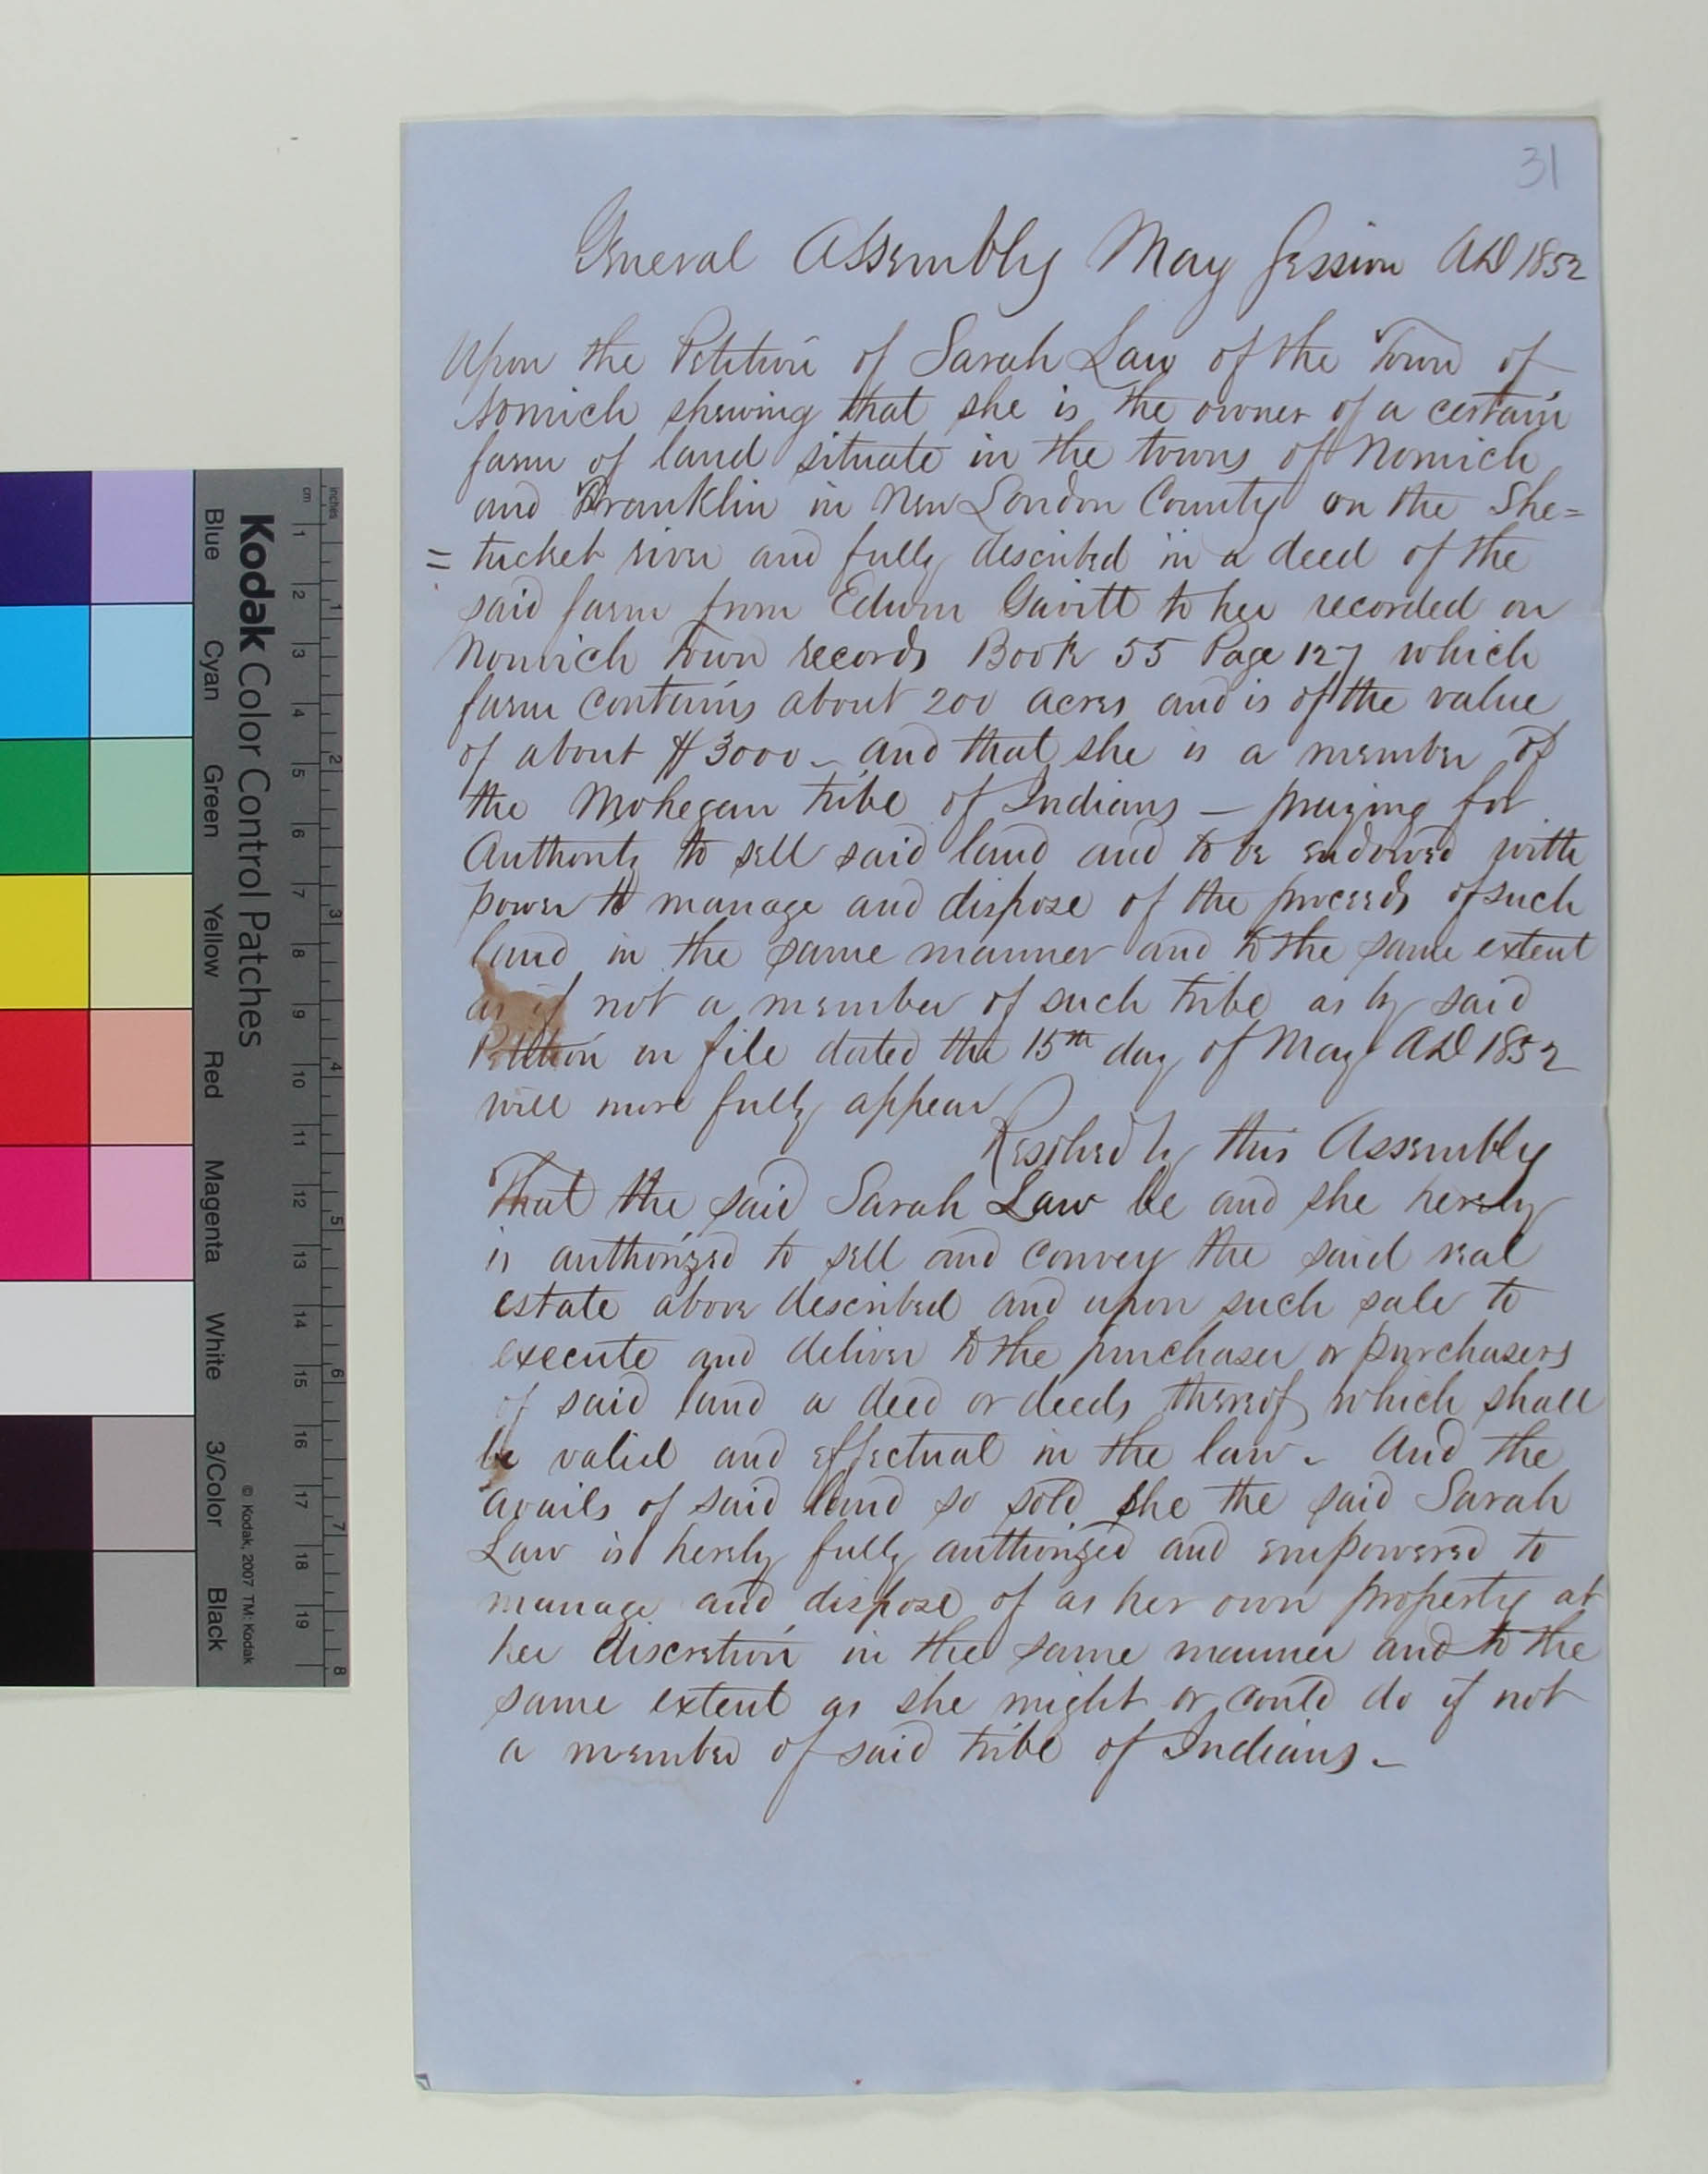 31
General Assembly May Session AD 1852
Upon the Petition of Sarah Law of the Town of
Norwich shewing that she is the owner of a certain
farm of land situate in the towns of Norwich
and Franklin in New London County on the She=
=tucket river and fully described in a deed of the
said farm from Edwin Gavitt to her recorded on
Norwich Town records Book 55 Page 127 which
farm contains about 200 acres and is of the value
of about $3000 - and that she is a member of
the Mohegan tribe of Indians - praying for
Authority to sell said land and to be endowed with
power to manage and dispose of the proceeds of such
land in the same manner and to the same extent
as if not a member of such tribe as by said
Petition on file dated the 15th day of May AD 1852
will more fully appear
Resolved by this Assembly
That the said Sarah Law be and she hereby
is authorized to sell and convey the said real
estate above described and upon such sale to
execute and deliver to the purchaser or purchasers
of said land a deed or deeds thereof which shall
be valid and effectual in the law - And the
avails of said land so sold she the said Sarah
Law is hereby fully authorized and empowered to
manage and dispose of as her own property at
her discretion in the same manner and to the
same extent as she might or could do if not
a member of said tribe of Indians -
Kodak Color Control Patches
© Kodak, 2007 TM: Kodak
Blue Cyan Green Yellow Red Magenta White 3/Color Black
cm 1 2 3 4 5 6 7 8 9 10 11 12 13 14 15 16 17 18 19
inches 1 2 3 4 5 6 7 8